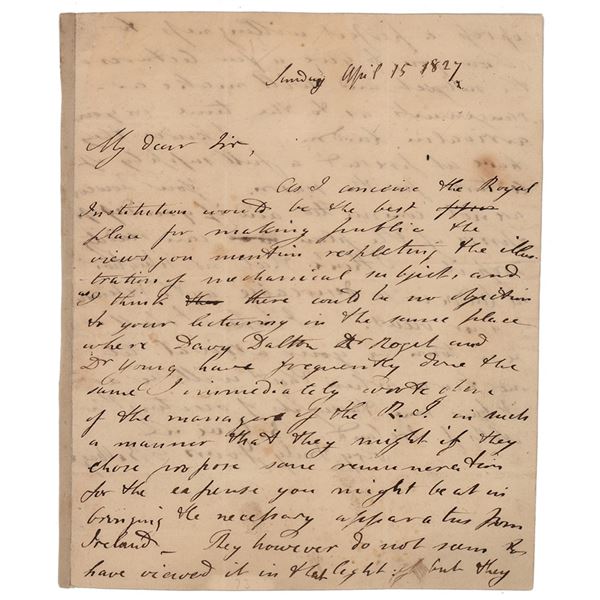 Sunday April 15 1827
My dear Sir,
As I conceive the Royal
Institution would be the best
place for making public the
views you mention respecting the illus-
tration of mechanical subjects and
as I think there could be no objection
to your lecturing in the same place
where Davy Dalton Dr Roget and
Dr Young have frequently done the
same I immediately wrote to one
of the managers of the R.I. in such
a manner that they might if they
chose propose some remuneration
for the expense you might be at in
bringing the necessary apparatus from
Ireland— They however do not seem to
have viewed it in that light but they